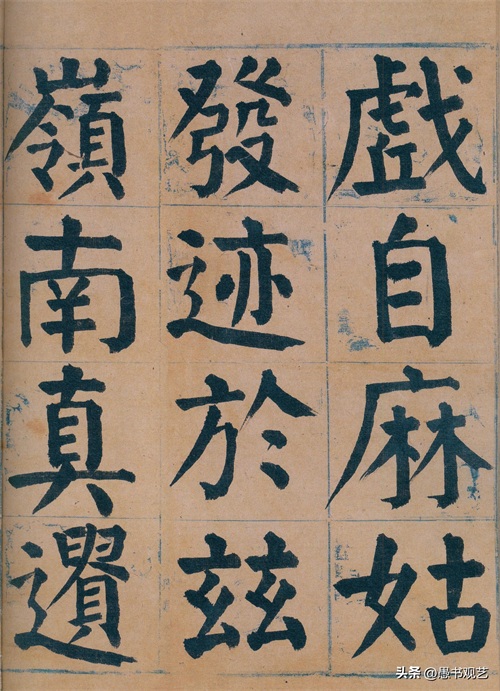 戲自麻姑
發迹於玆
嶺南真遺
头条 @愚书观艺